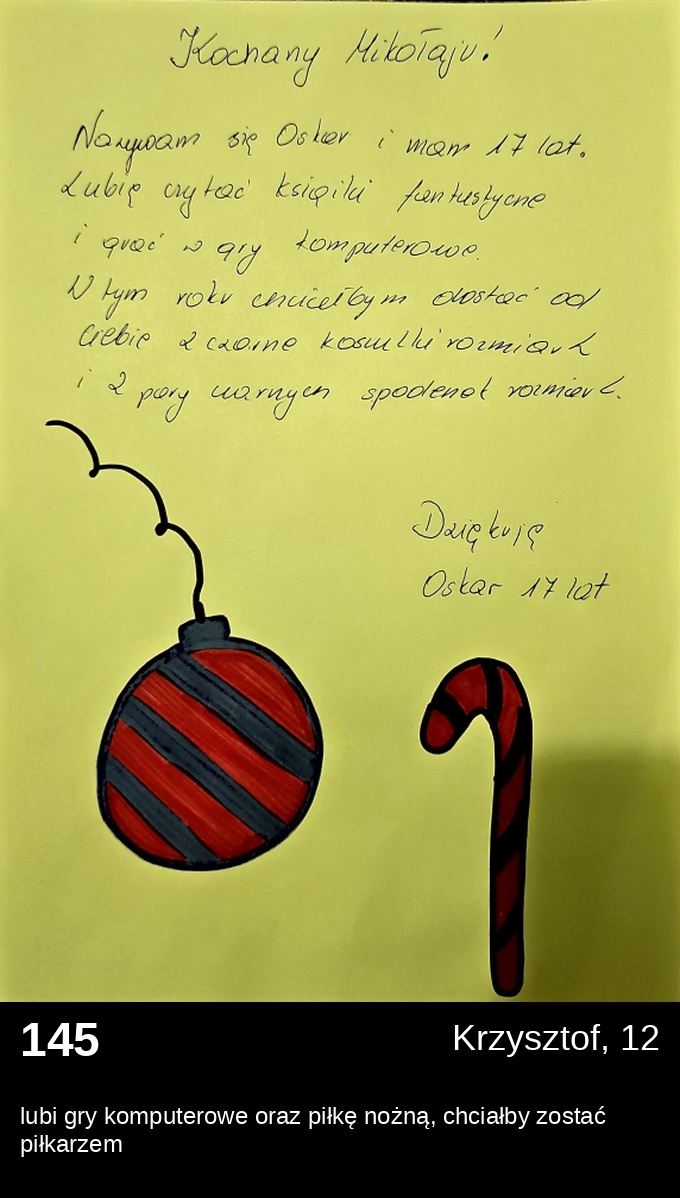 Kochany Mikołaju!
Nazywam się Oskar i mam 17 lat.
Lubię czytać książki fantastyczne
i grać w gry komputerowe.
W tym roku chciałbym dostać od
Ciebie 2 czarne koszulki rozmiar L
i 2 pary czarnych spodenek rozmiar L.
Dziękuję
Oskar 17 lat
145
Krzysztof, 12
lubi gry komputerowe oraz piłkę nożną, chciałby zostać
piłkarzem